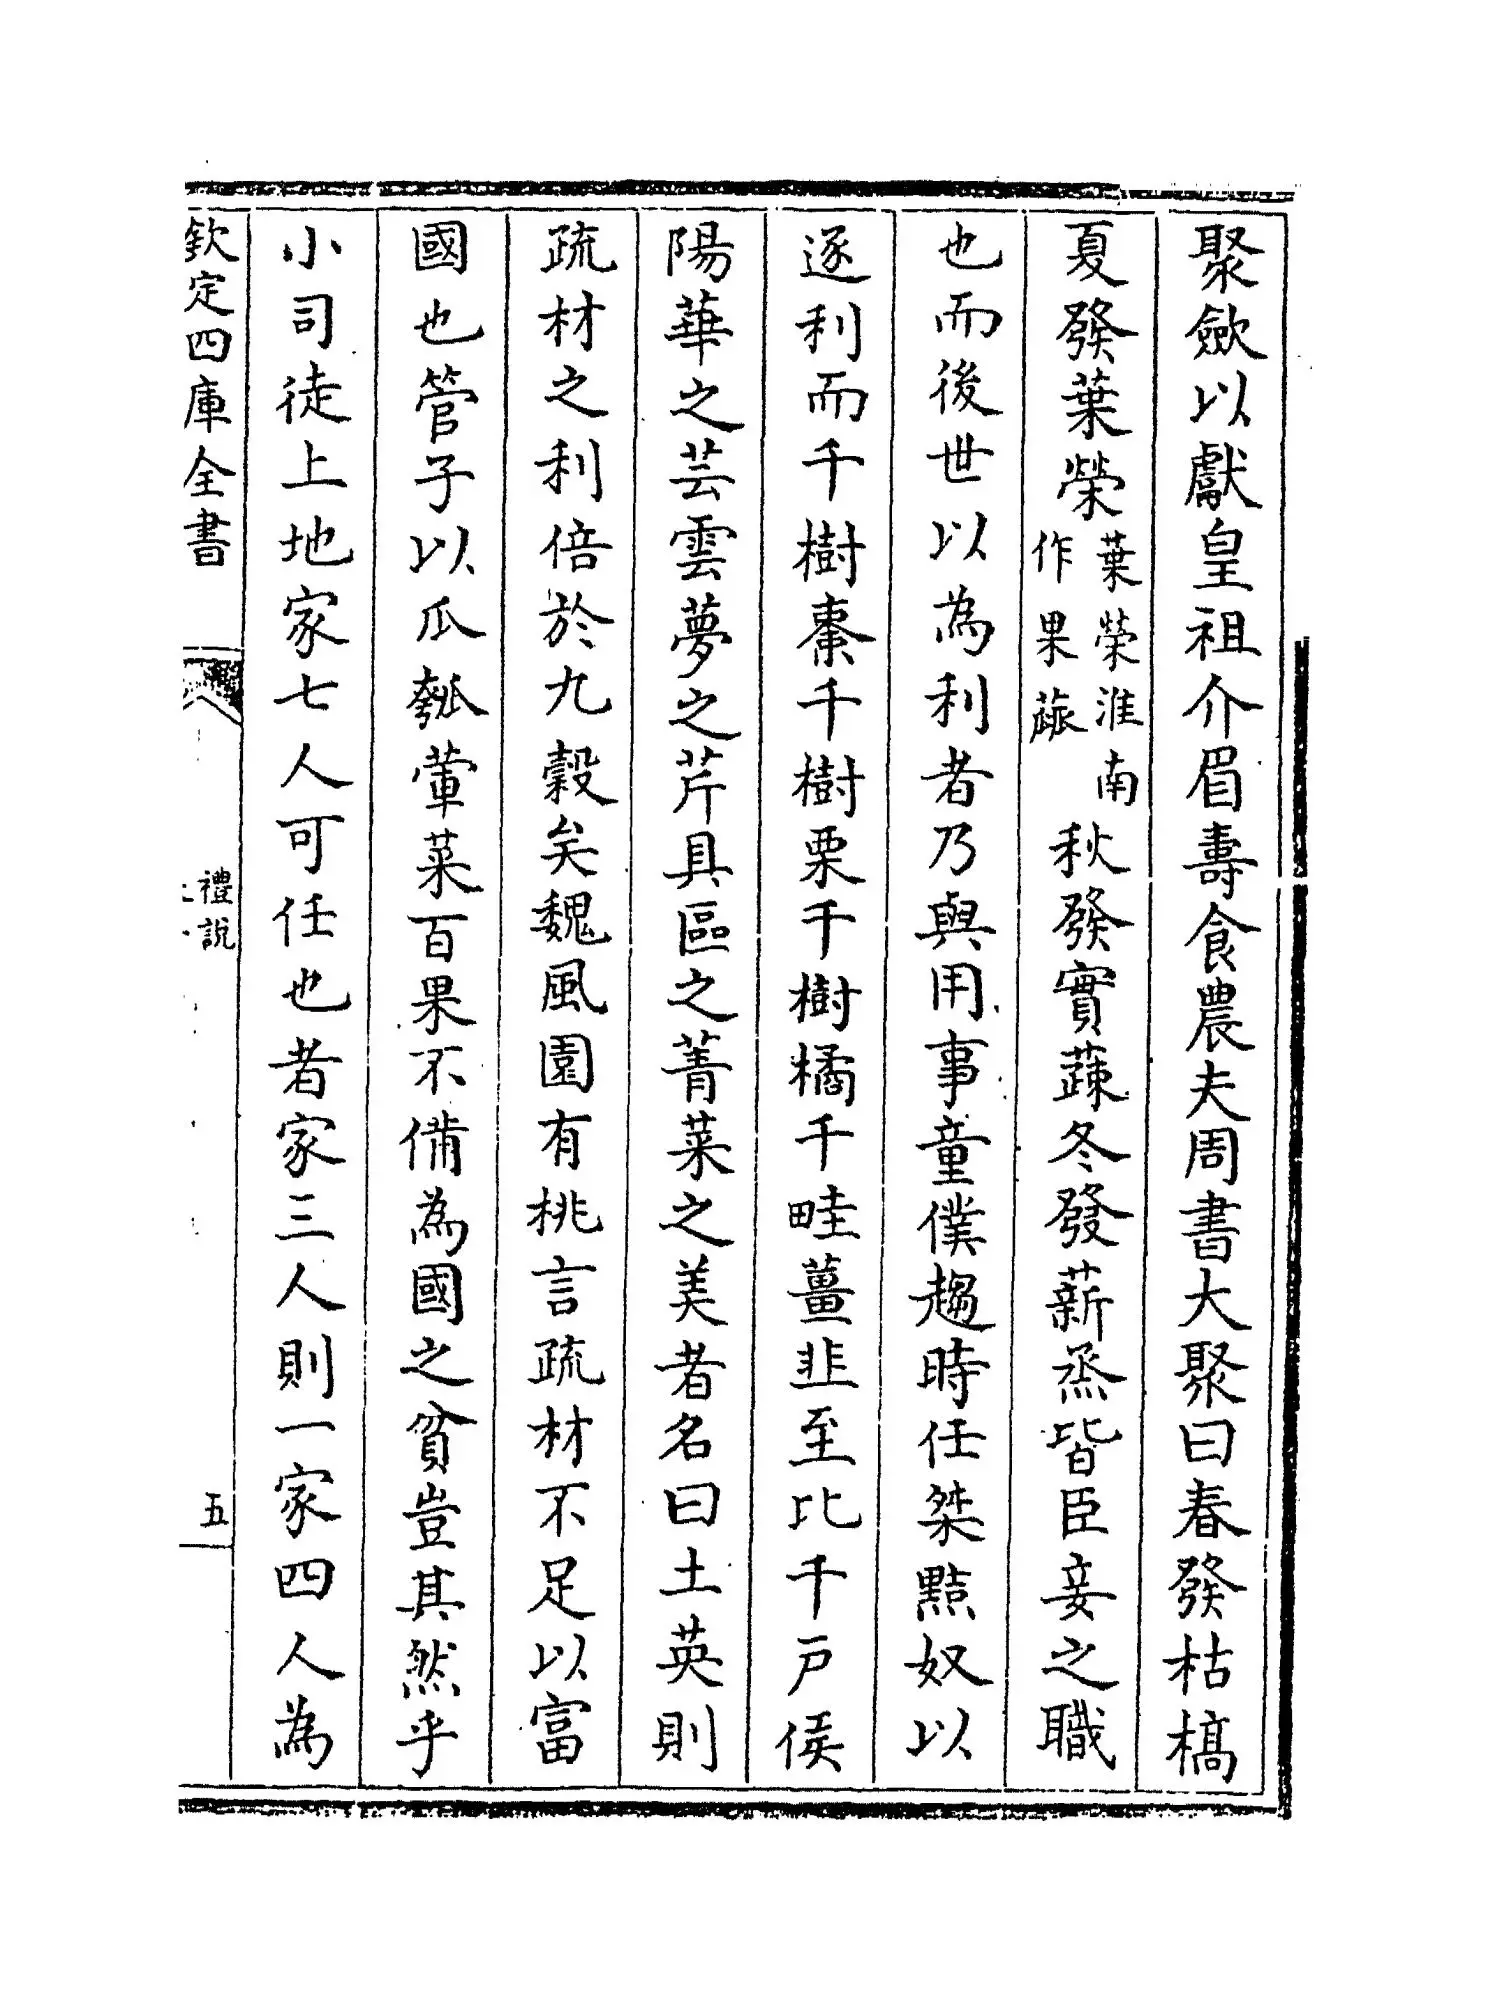 聚斂以獻皇祖介眉壽食農夫周書大聚曰春發枯槁
夏發葉榮葉榮淮南作果蓏秋發實蔬冬發薪烝皆臣妾之職
也而後世以為利者乃與用事童僕趨時任桀黠奴以
逐利而千樹棗千樹栗千樹橘千畦薑韭至比千戸侯
陽華之芸雲夢之芹具區之菁菜之美者名曰土英則
疏材之利倍於九穀矣魏風園有桃言疏材不足以富
國也管子以瓜瓠葷菜百果不備為國之貧豈其然乎
小司徒上地家七人可任也者家三人則一家四人為
欽定四庫全書
禮說
五